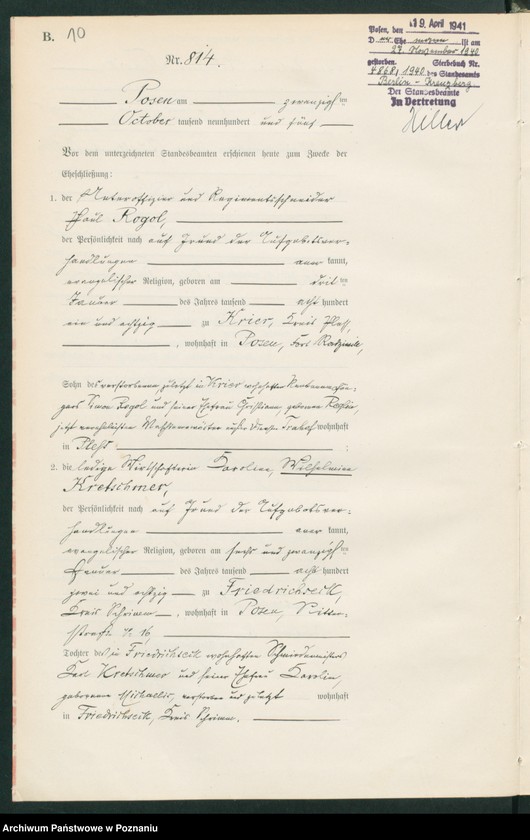 B. 10
Posen, den 19. April 1941
Der Ehemann ist am
27. November 1940
gestorben. Sterbebuch Nr.
4868, 1940 des Standesamts
Berlin - Kreuzberg
Der Standesbeamte
In Vertretung
Hiller
Nr. 814.
Posen am zwanzigsten
October tausend neunhundert und fünf
Vor dem unterzeichneten Standesbeamten erschienen heute zum Zwecke der
Eheschließung:
1. der Unteroffizier und Regimentsschneider
Paul Rogol,
der Persönlichkeit nach auf Grund der Aufgebotsver-
handlungen anerkannt,
evangelischer Religion, geboren am
Januar des Jahres tausend acht hundert
ein und achtzig zu Krier, Kreis Pleß,
, wohnhaft in Posen, Fort
Sohn des verstorbenen, zuletzt in Krier wohnhaften
Rogol und seiner Ehefrau Christiane, geborene
wohnhaft
in Pleß
2. die ledige Wirtschafterin Karoline, Wilhelmine
Kretschmer,
der Persönlichkeit nach auf Grund der Aufgebotsver-
handlungen anerkannt,
evangelischer Religion, geboren am sechs und zwanzigsten
Januar des Jahres tausend acht hundert
zwei und achtzig zu Friedrichseck,
Kreis Schrimm, wohnhaft in Posen, Ritter-
straße № 16,
Tochter des in Friedrichseck wohnhaften Schmiedemeisters
Karl Kretschmer und seiner Ehefrau Karoline,
geborene Michaelis, verstorben und zuletzt wohnhaft
in Friedrichseck, Kreis Schrimm.
Archiwum Państwowe w Poznaniu